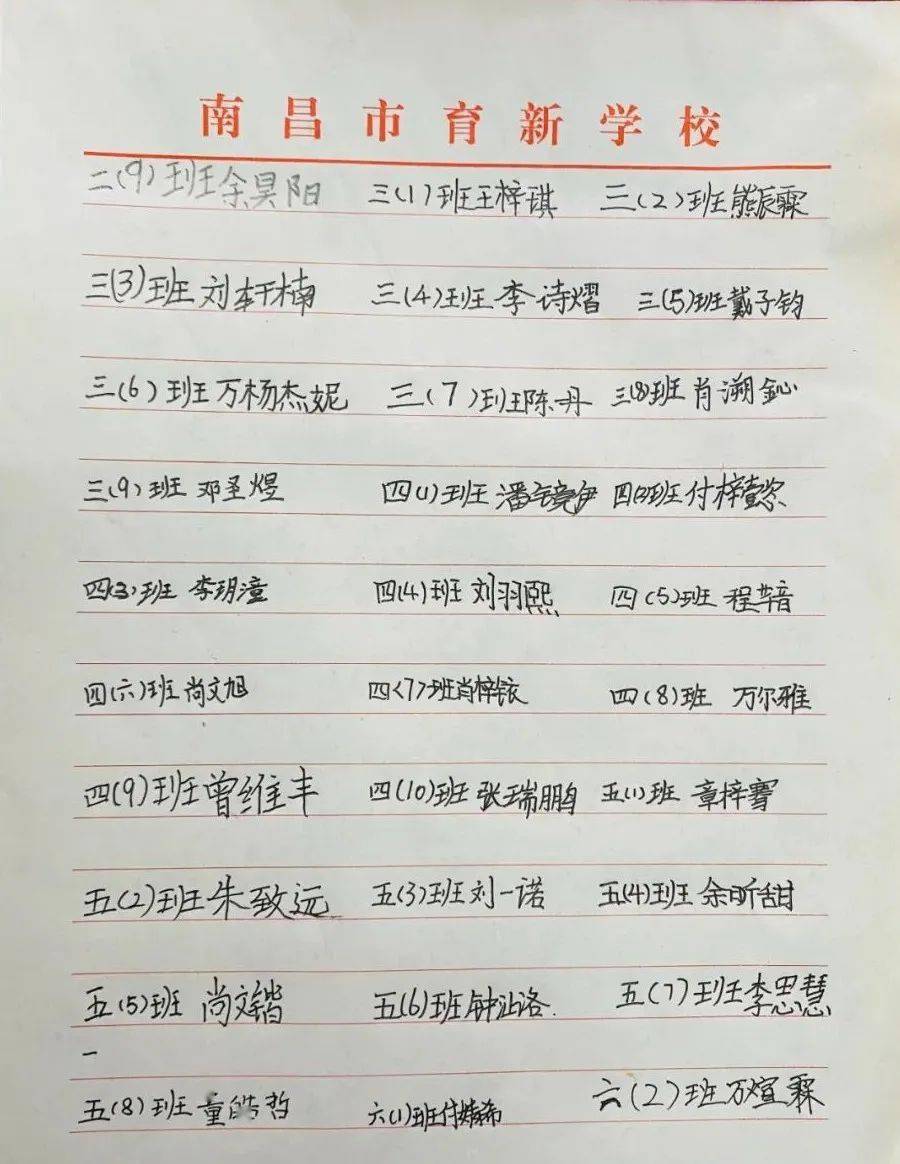 南昌市育新学校
二(9)班余昊阳 三(1)班王梓琪 三(2)班熊辰霖
三(3)班 刘轩楠 三(4)班 李诗熠 三(5)班戴子钧
三(6)班 万杨杰妮 三(7)班陈丹 三(8)班肖溯鈊
三(9)班 邓圣煜 四(1)班 潘 伊 四(2)班付梓懿
四(3)班 李玥潼 四(4)班 刘羽熙 四(5)班 程
四(六)班 尚文旭 四(7)班肖梓铱 四(8)班 万尔雅
四(9)班曾维丰 四(10)班 张瑞鹏 五(1)班 章梓骞
五(2)班朱致远 五(3)班刘一诺 五(4)班 余昕甜
五(5)班 尚文锴 五(6)班钟沚洛. 五(7)班李思慧
五(8)班 童皓哲 六(1)班付婧希 六(2)班万煊霖